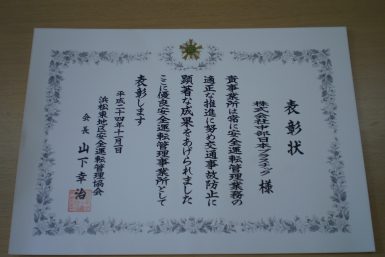 表彰状
株式会社中部日本プラスチック 様
貴事業所は常に安全運転管理業務の
適正な推進に努め交通事故防止に
顕著な成果をあげられました
ここに優良安全運転管理事業所として
表彰します
平成二十四年十一月一日
浜松東地区安全運転管理協会
会長 山下幸治